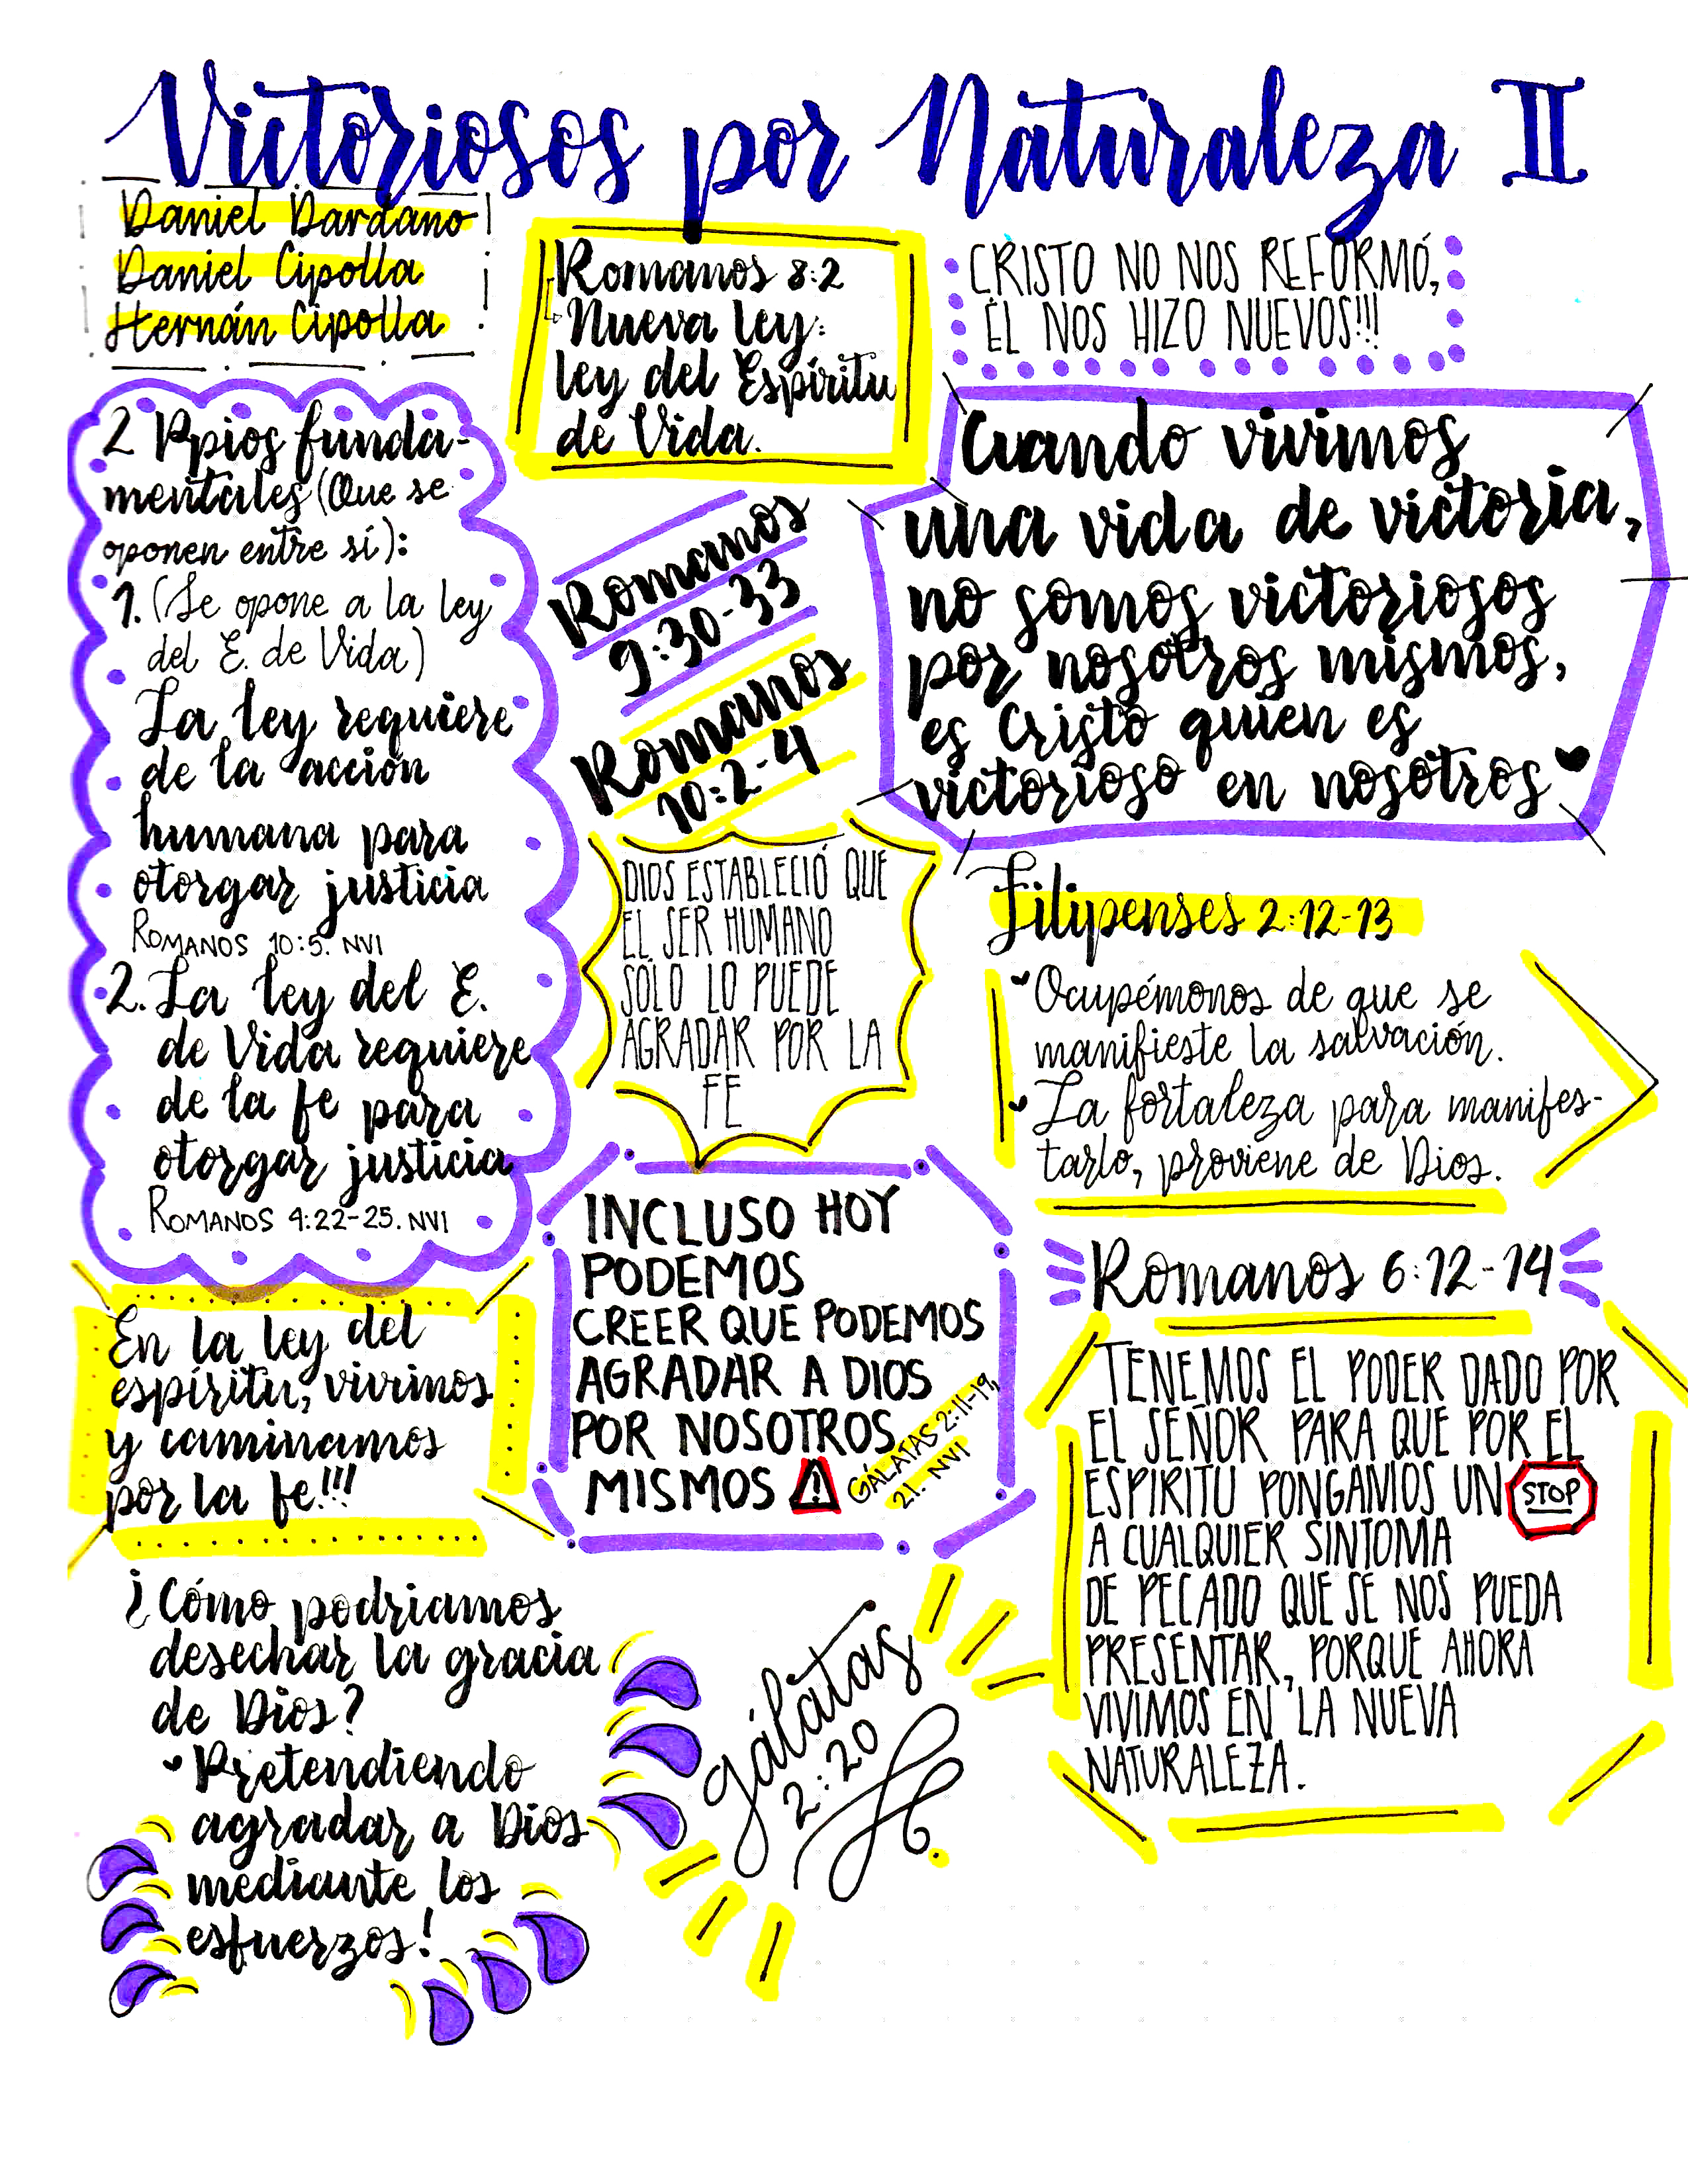 Victoriosos por Naturaleza II
Daniel Dardano
Daniel Cipolla
Hernán Cipolla
Romanos 8:2
Nueva ley:
ley del Espíritu
de Vida.
CRISTO NO NOS REFORMÓ,
ÉL NOS HIZO NUEVOS!!!
2 Ppios funda-
mentales (Que se
oponen entre sí):
1. (Se opone a la ley
del E. de Vida)
La ley requiere
de la acción
humana para
otorgar justicia
ROMANOS 10:5. NVI
2. La ley del E.
de Vida requiere
de la fe para
otorgar justicia
ROMANOS 4:22-25. NVI
Romanos
9:30-33
Romanos
10:2-4
Cuando vivimos
una vida de victoria,
no somos victoriosos
por nosotros mismos,
es Cristo quien es
victorioso en nosotros
DIOS ESTABLECIÓ QUE
EL SER HUMANO
SÓLO LO PUEDE
AGRADAR POR LA
FE
Filipenses 2:12-13
Ocupémonos de que se
manifieste la salvación.
La fortaleza para manifes-
tarlo, proviene de Dios.
INCLUSO HOY
PODEMOS
CREER QUE PODEMOS
AGRADAR A DIOS
POR NOSOTROS
MISMOS
GÁLATAS 2:11-19,
21. NVI
Romanos 6:12-14
TENEMOS EL PODER DADO POR
EL SEÑOR PARA QUE POR EL
ESPIRITU PONGAMOS UN STOP
A CUALQUIER SINTOMA
DE PECADO QUE SE NOS PUEDA
PRESENTAR, PORQUE AHORA
VIVIMOS EN LA NUEVA
NATURALEZA.
En la ley del
espíritu, vivimos
y caminamos
por la fe!!!
¿Cómo podriamos
desechar la gracia
de Dios?
Pretendiendo
agradar a Dios
mediante los
esfuerzos!
Gálatas
2:20